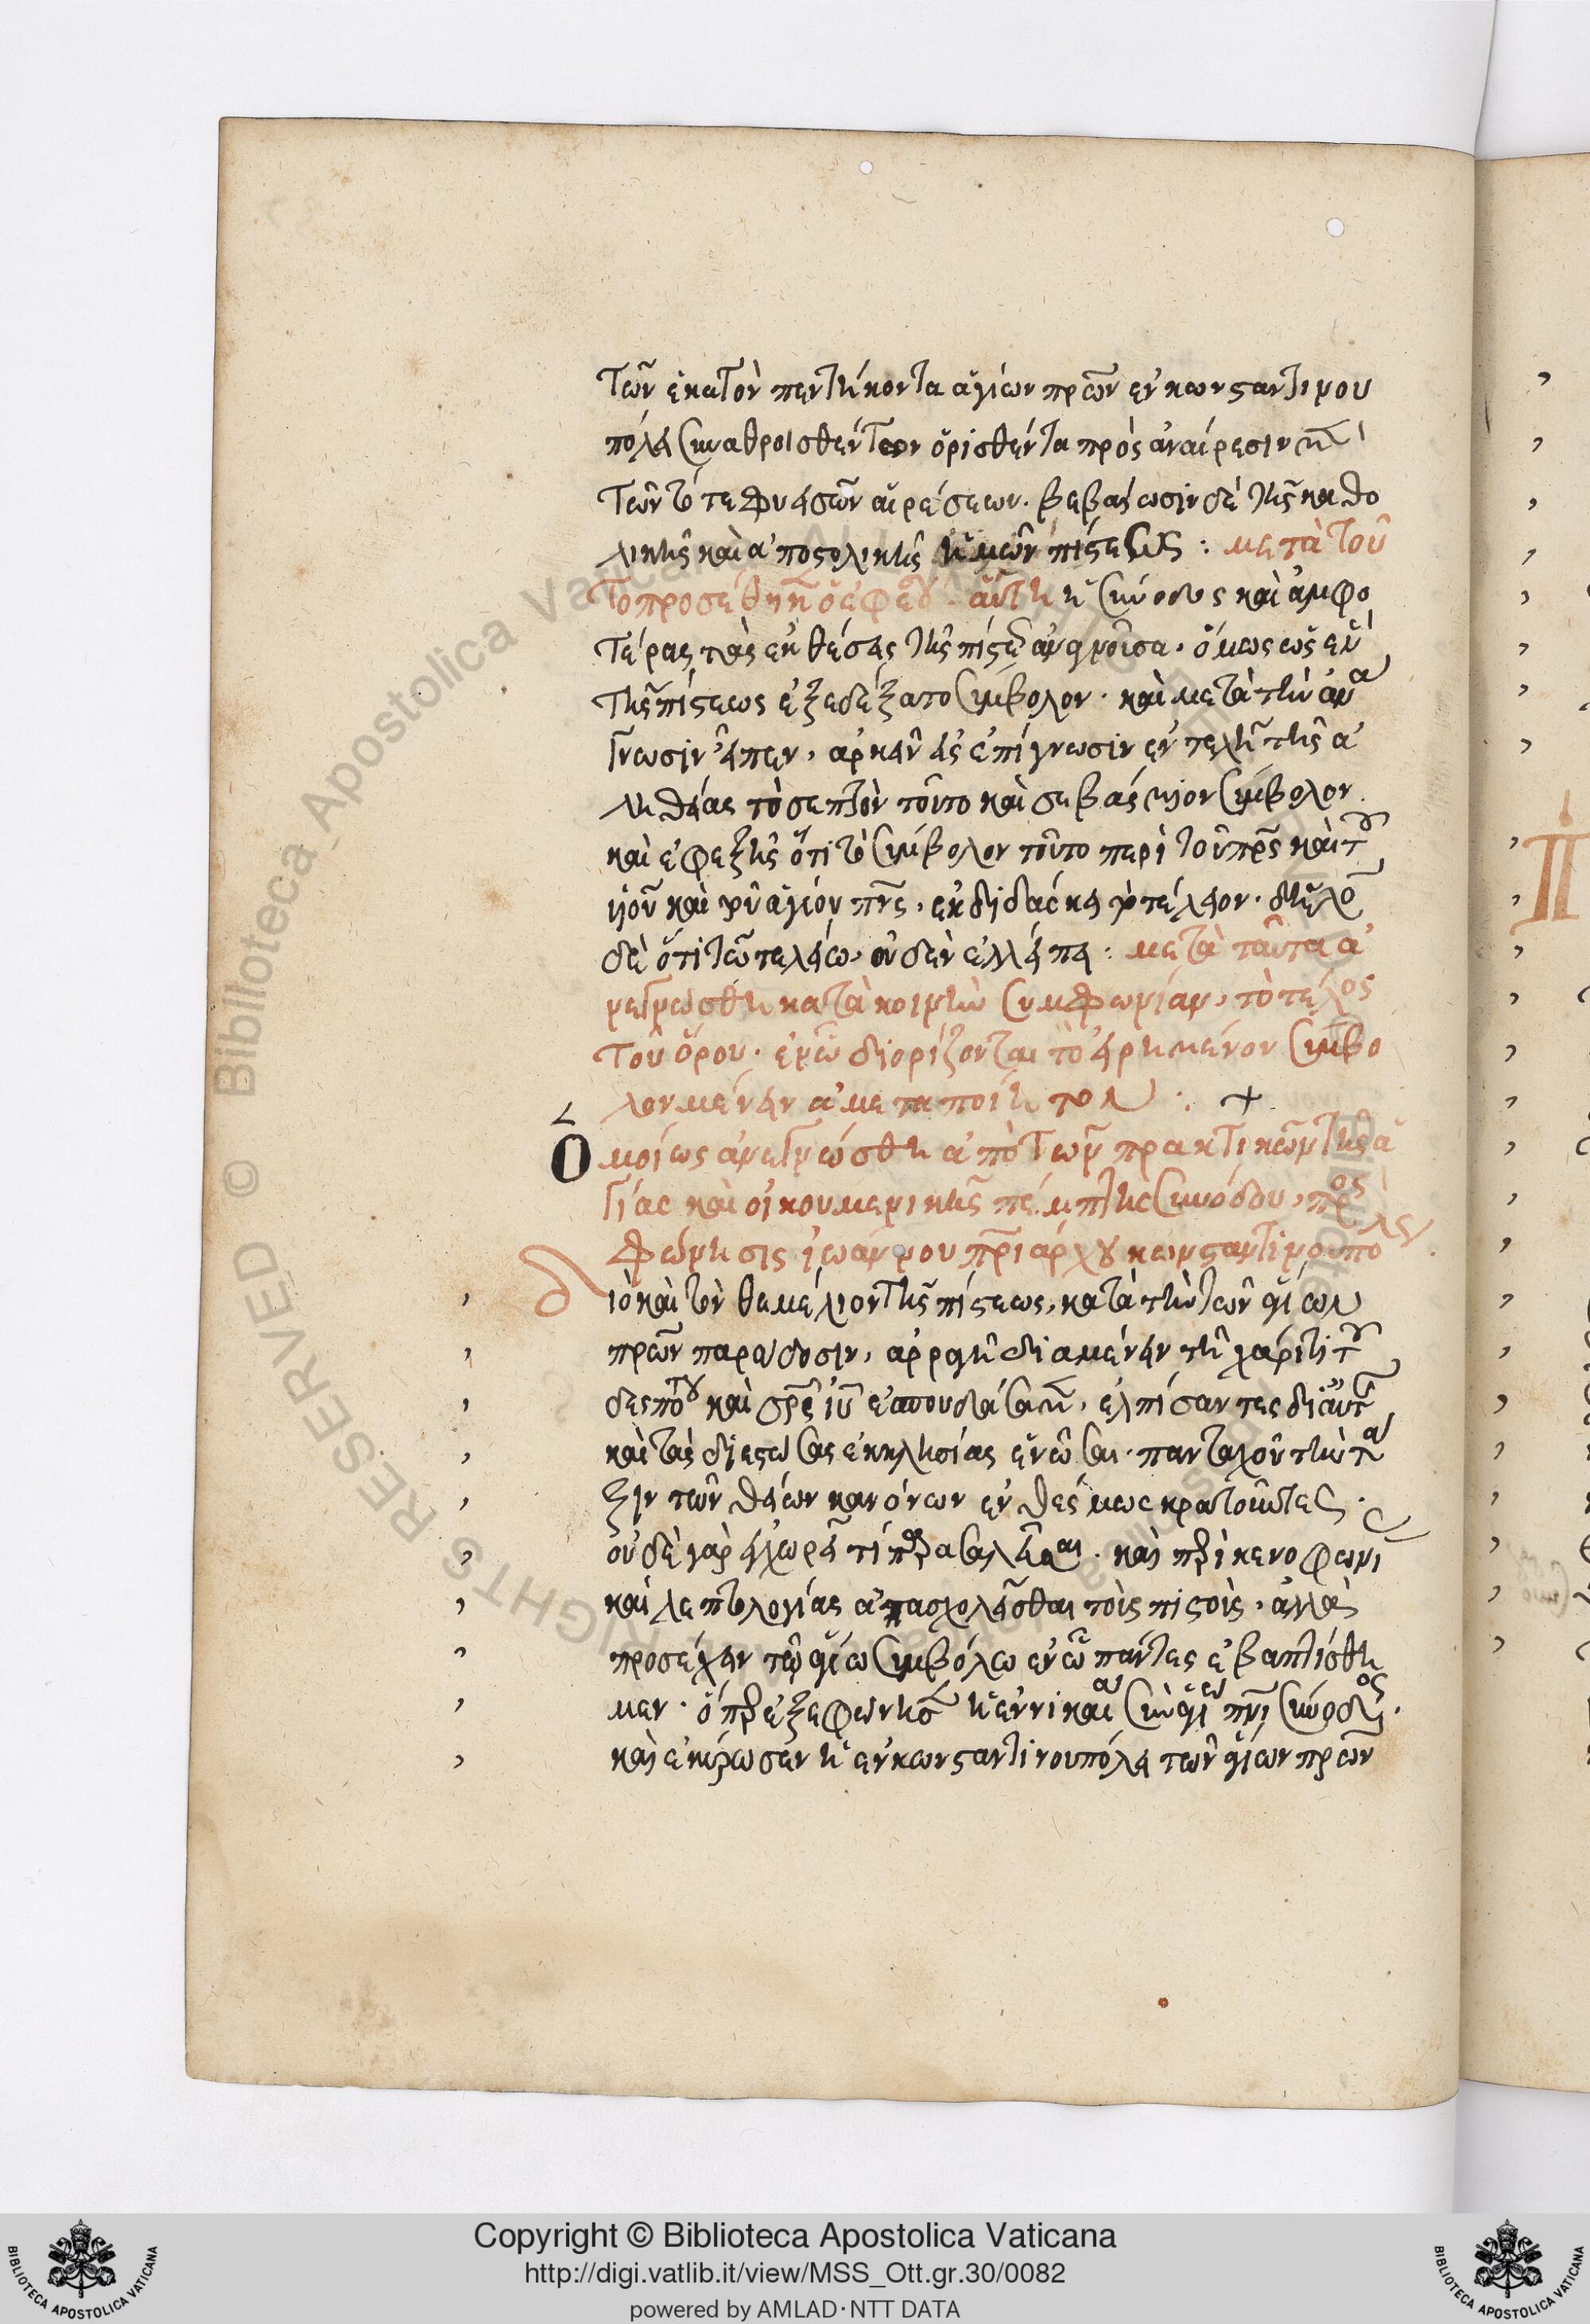 τῶν ἑκατὸν πεντήκοντα ἁγίων πρων ἐν κωνσταντινου
πόλει συναθροισθέντων ὁρισθέντα πρὸς ἀναίρεσιν μὲν
τῶν τότε φυεισῶν αἱρέσεων. βεβαίωσιν δὲ τῆς καθο
λικῆς καὶ ἀποστολικῆς ἡμῶν πίστεως : μετὰ τοῦ
το προσέθηκεν ὁ ἐφέσου. αὕτη ἡ σύνοδος καὶ ἀμφο
τέρας τὰς ἐκθέσεις τῆς πίστεως ἀναγνοῦσα, ὅμως ὡς ἓν
τῆς πίστεως ἐξεδέξατο σύμβολον. καὶ μετὰ τὴν ἀνά
γνωσιν εἶπεν, ἀρκεῖν εἰς ἐπίγνωσιν ἐντελῆ τῆς ἀ
ληθείας τὸ σεπτὸν τοῦτο καὶ σεβάσμιον σύμβολον.
καὶ ἐφεξῆς ὅτι τὸ σύμβολον τοῦτο περὶ τοῦ πρς καὶ τοῦ
υἱοῦ καὶ τοῦ ἁγίου πνς, ἐκδιδάσκει τὸ τέλειον. δῆλον
δὲ ὅτι τῶ τελείω, οὐδὲν ἐλλείπει : μετὰ ταῦτα ἀ
νεγνώσθη κατὰ κοινὴν συμφωνίαν, τὸ τέλος
τοῦ ὅρου. ἐν ὧ διορίζονται τὸ εἰρημένον σύμβο
λον μένειν ἀμεταποίητον :. +
Ὁμοίως ἀνεγνώσθη ἀπὸ τῶν πρακτικῶν τῆς ἁ
γίας καὶ οἰκουμενικῆς πέμπτης συνόδου, προσ
φώνησις ἰωάννου πριάρχου κωνσταντινουπόλεως.
διὸ καὶ τὸν θεμέλιον τῆς πίστεως, κατὰ τὴν τῶν ἁγίων
πρων παράδοσιν, ἀρραγῆ διαμένειν τῆ χάριτι τοῦ
δεσπότου καὶ σρς ἰυ ἐσπουδάσαμεν, ἐλπίσαντες δι' αὐτοῦ
καὶ τὰς διεστώσας ἐκκλησίας ἑνῶσαι. πανταχοῦ τὴν τά
ξιν τῶν θείων κανόνων ἐνθέσμως κρατοῦντες.
οὐδὲ γὰρ ἐχώρει τί παρασαλεῦσαι. καὶ περὶ κενοφωνί
καὶ λεπτολογίας ἀπασχολεῖσθαι τοῖς πιστοῖς, ἀλλὰ
προσέχειν τῶ ἁγίω συμβόλω ἐν ὧ πάντες ἐβαπτίσθη
μεν. ὅπερ ἐξεφώνησεν ἡ ἐν νικαία σὺν ἁγίω πνι σύνοδος.
καὶ ἐκύρωσεν ἡ ἐν κωνσταντινουπόλει τῶν ἁγίων πρων
Copyright © Biblioteca Apostolica Vaticana
http://digi.vatlib.it/view/MSS_Ott.gr.30/0082
powered by AMLAD·NTT DATA